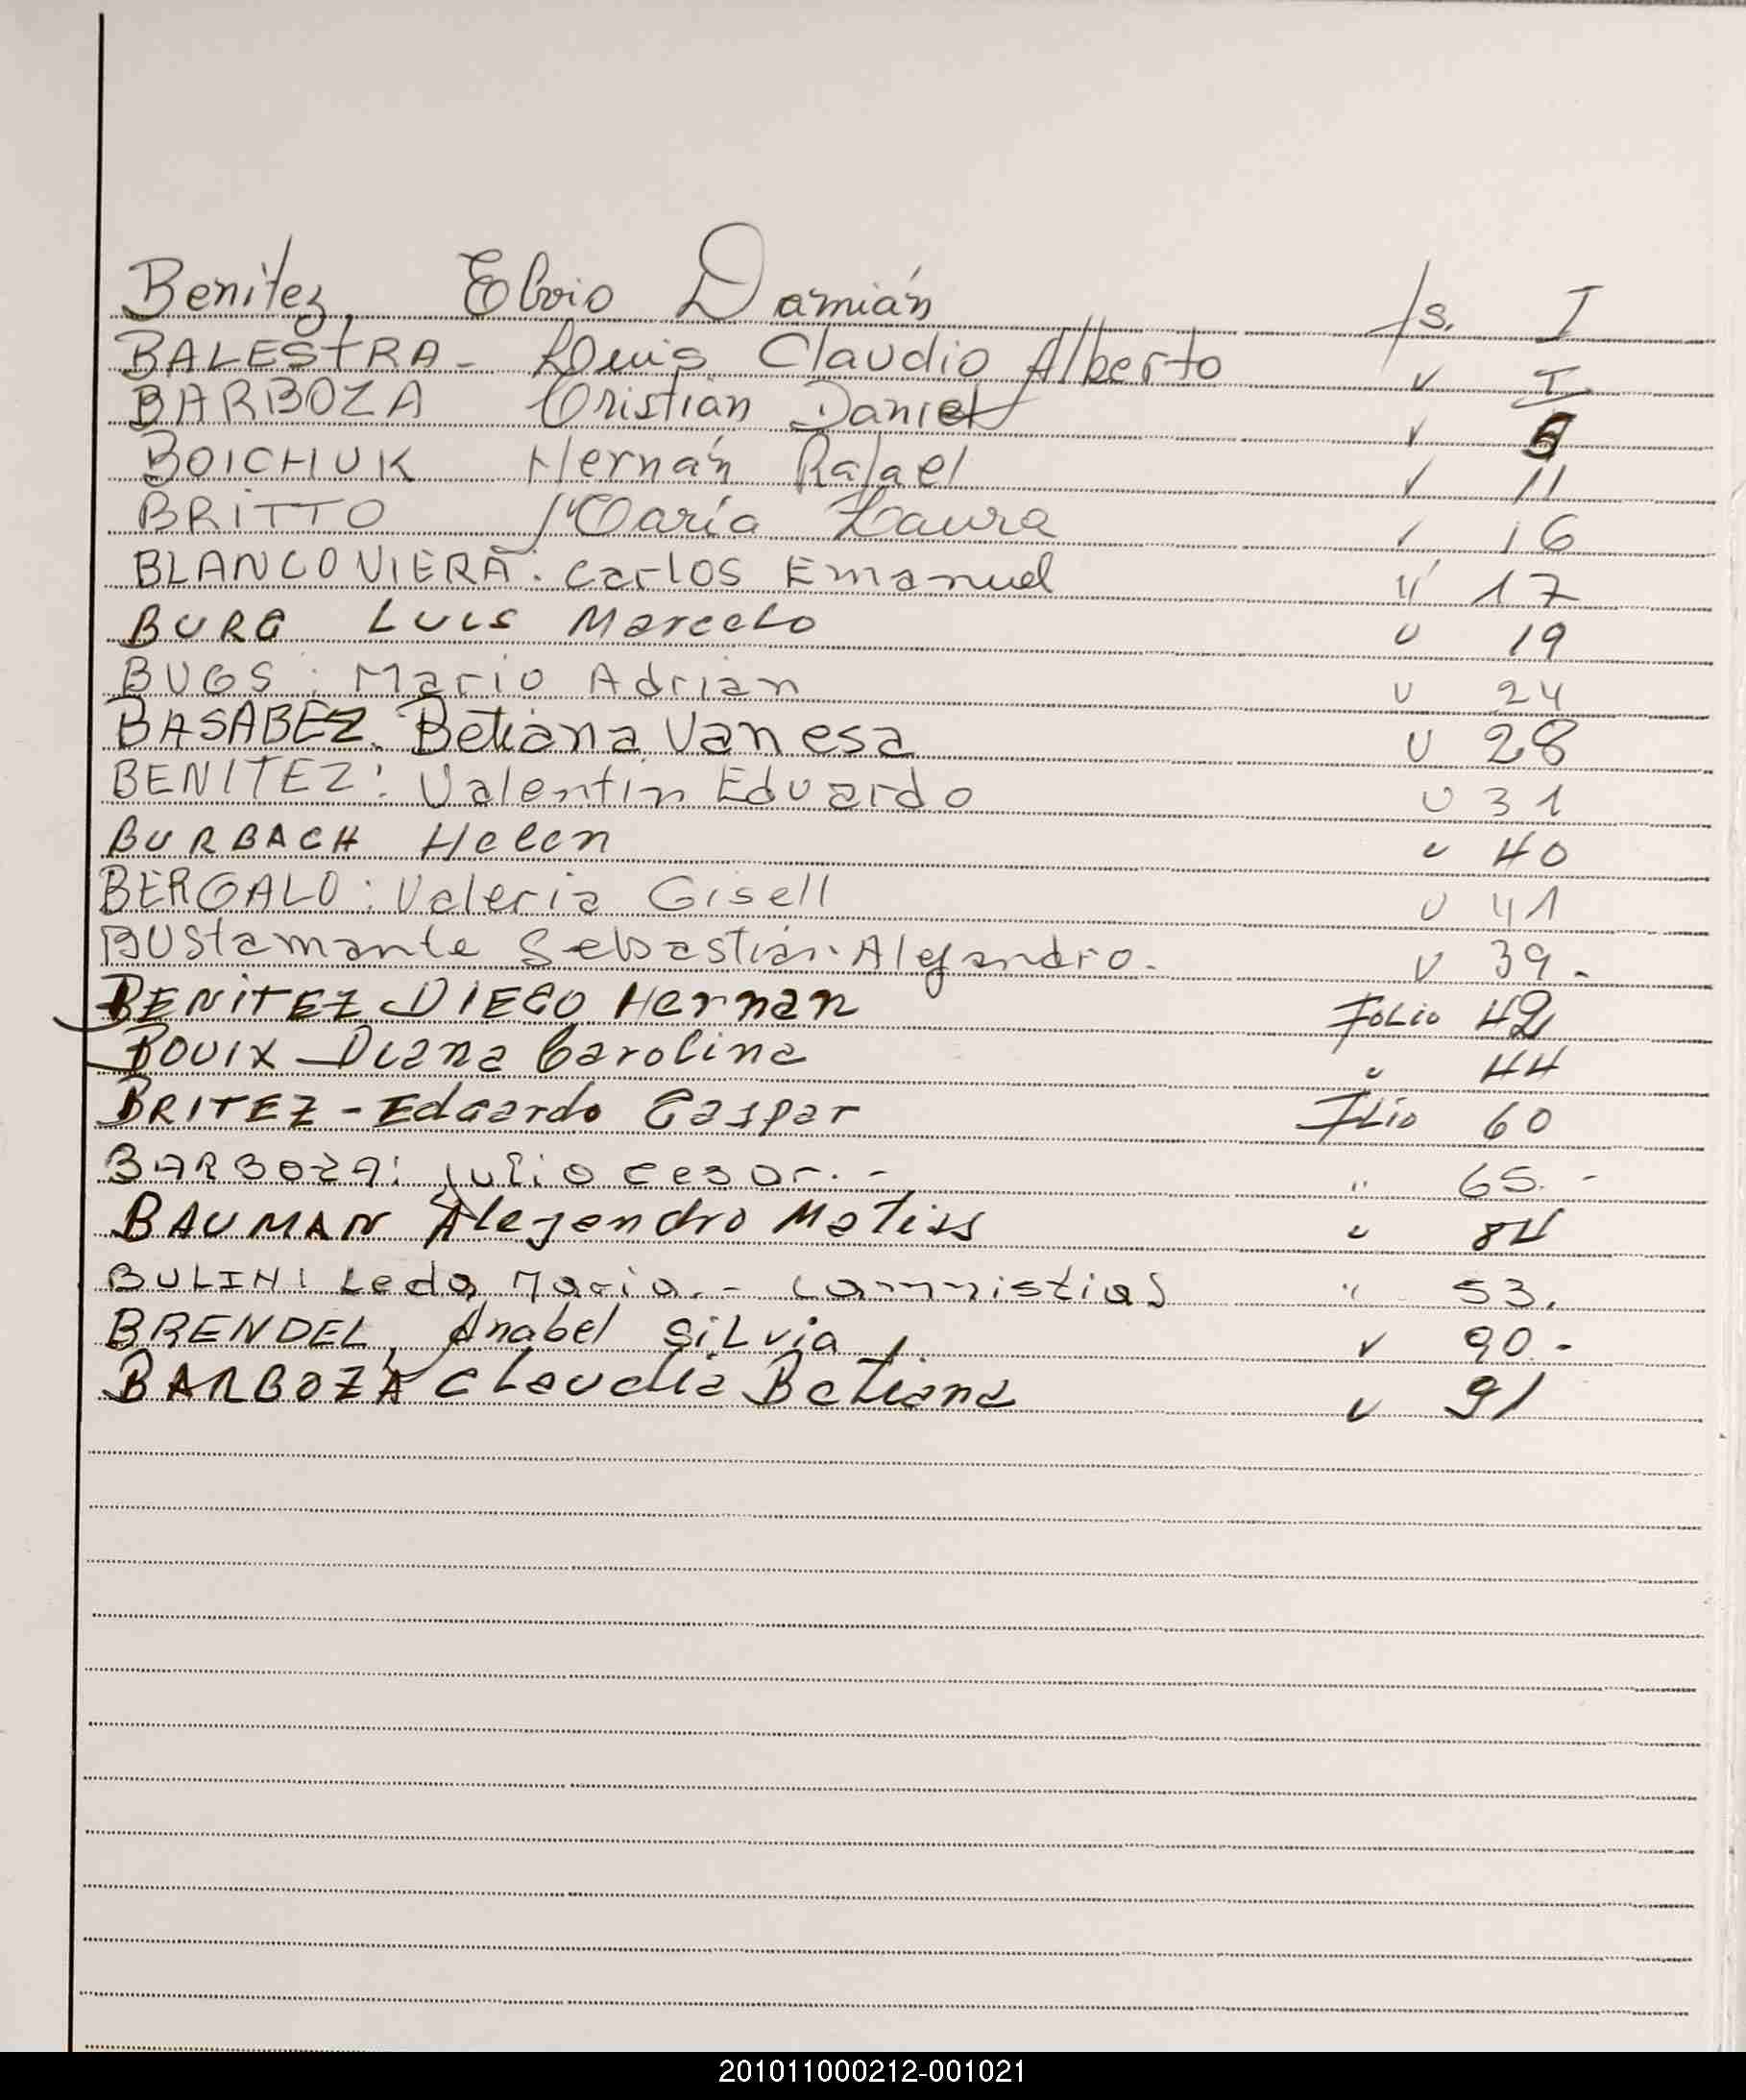 Benitez, Elvio Damián fs. I
BALESTRA - Luis Claudio Alberto " I
BARBOZA Cristian Daniel " 6
BOICHUK Hernán Rafael " 11
BRITTO María Laura " 16
BLANCO VIERA. Carlos Emanuel " 17
BURG LUIS Marcelo " 19
BUGS: Mario Adrian " 24
BASABEZ. Betiana Vanesa " 28
BENITEZ: Valentin Eduardo " 31
BURBACH Helen " 40
BERGALO: Valeria Gisell " 41
BUStamante Sebastián Alejandro. " 39.-
BENITEZ DIEGO Hernan FoLio 42
BOUIX Diana Carolina " 44
BRITEZ - Edgardo Gaspar FLio 60
BARBOZA: Julio cesar. - " 65. -
BAUMAN Alejandro Matias " 84
BULIN: Leda Maria. - " 53.
BRENDEL, Anabel SiLvia " 90.-
BARBOZA Claudia Betiana " 91
201011000212-001021